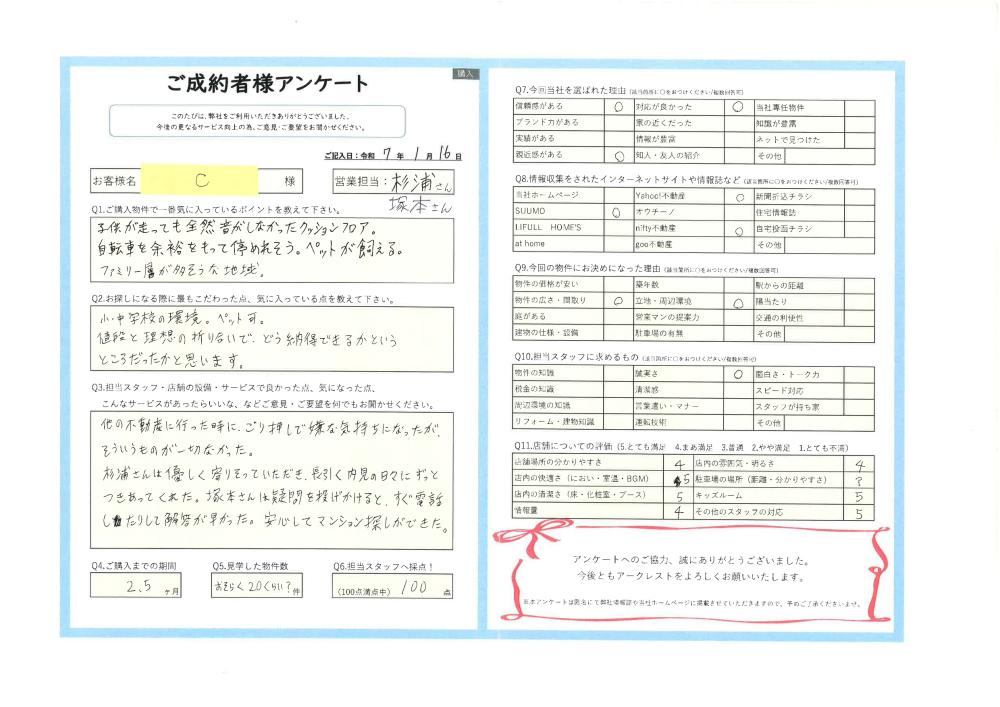 購入
ご成約者様アンケート
このたびは、弊社をご利用いただきありがとうございました。
今後の更なるサービス向上の為、ご意見・ご要望をお聞かせください。
ご記入日：令和 7 年 1 月 16 日
お客様名 C 様
営業担当：杉浦さん
塚本さん
Q1.ご購入物件で一番気に入っているポイントを教えて下さい。
子供が走っても全然音がしなかったクッションフロア。
自転車を余裕をもって停めれそう。ペットが飼える。
ファミリー層が多そうな地域。
Q2.お探しになる際に最もこだわった点、気に入っている点を教えて下さい。
小・中学校の環境。ペット可。
値段と理想の折り合いで、どう納得できるかという
ところだったかと思います。
Q3.担当スタッフ・店舗の設備・サービスで良かった点、気になった点、
こんなサービスがあったらいいな、などご意見・ご要望を何でもお聞かせください。
他の不動産に行った時に、ごり押しで嫌な気持ちになったが、
そういうものが一切なかった。
杉浦さんは優しく寄りそっていただき、長引く内見の日々にずっと
つきあってくれた。塚本さんは疑問を投げかけると、すぐ電話
したりして解答が早かった。安心してマンション探しができた。
Q4.ご購入までの期間
2.5 ヶ月
Q5.見学した物件数
おそらく20くらい？件
Q6.担当スタッフへ採点！
（100点満点中） 100 点
Q7.今回当社を選ばれた理由（該当箇所に○をおつけください/複数回答可）
信頼感がある ○ 対応が良かった ○ 当社専任物件
ブランド力がある 家の近くだった 知識が豊富
実績がある 情報が豊富 ネットで見つけた
親近感がある ○ 知人・友人の紹介 その他
Q8.情報収集をされたインターネットサイトや情報誌など（該当箇所に○をおつけください/複数回答可）
当社ホームページ Yahoo!不動産 ○ 新聞折込チラシ
SUUMO ○ オウチーノ 住宅情報誌
LIFULL HOME'S nifty不動産 ○ 自宅投函チラシ
at home goo不動産 その他
Q9.今回の物件にお決めになった理由（該当箇所に○をおつけください/複数回答可）
物件の価格が安い 築年数 駅からの距離
物件の広さ・間取り ○ 立地・周辺環境 ○ 陽当たり
庭がある 営業マンの提案力 交通の利便性
建物の仕様・設備 駐車場の有無 その他
Q10.担当スタッフに求めるもの（該当箇所に○をおつけください/複数回答可）
物件の知識 誠実さ ○ 面白さ・トーク力
税金の知識 清潔感 スピード対応
周辺環境の知識 言葉遣い・マナー スタッフが持ち家
リフォーム・建物知識 運転技術 その他
Q11.店舗についての評価（5.とても満足 4.まあ満足 3.普通 2.やや満足 1.とても不満）
店舗場所の分かりやすさ 4 店内の雰囲気・明るさ 4
店内の快適さ（におい・室温・BGM） 5 駐車場の場所（距離・分かりやすさ） ?
店内の清潔さ（床・化粧室・ブース） 5 キッズルーム 5
情報量 4 その他のスタッフの対応 5
アンケートへのご協力、誠にありがとうございました。
今後ともアークレストをよろしくお願いいたします。
※本アンケートは匿名にて弊社情報誌や当社ホームページに掲載させていただきますので、予めご了承くださいませ。